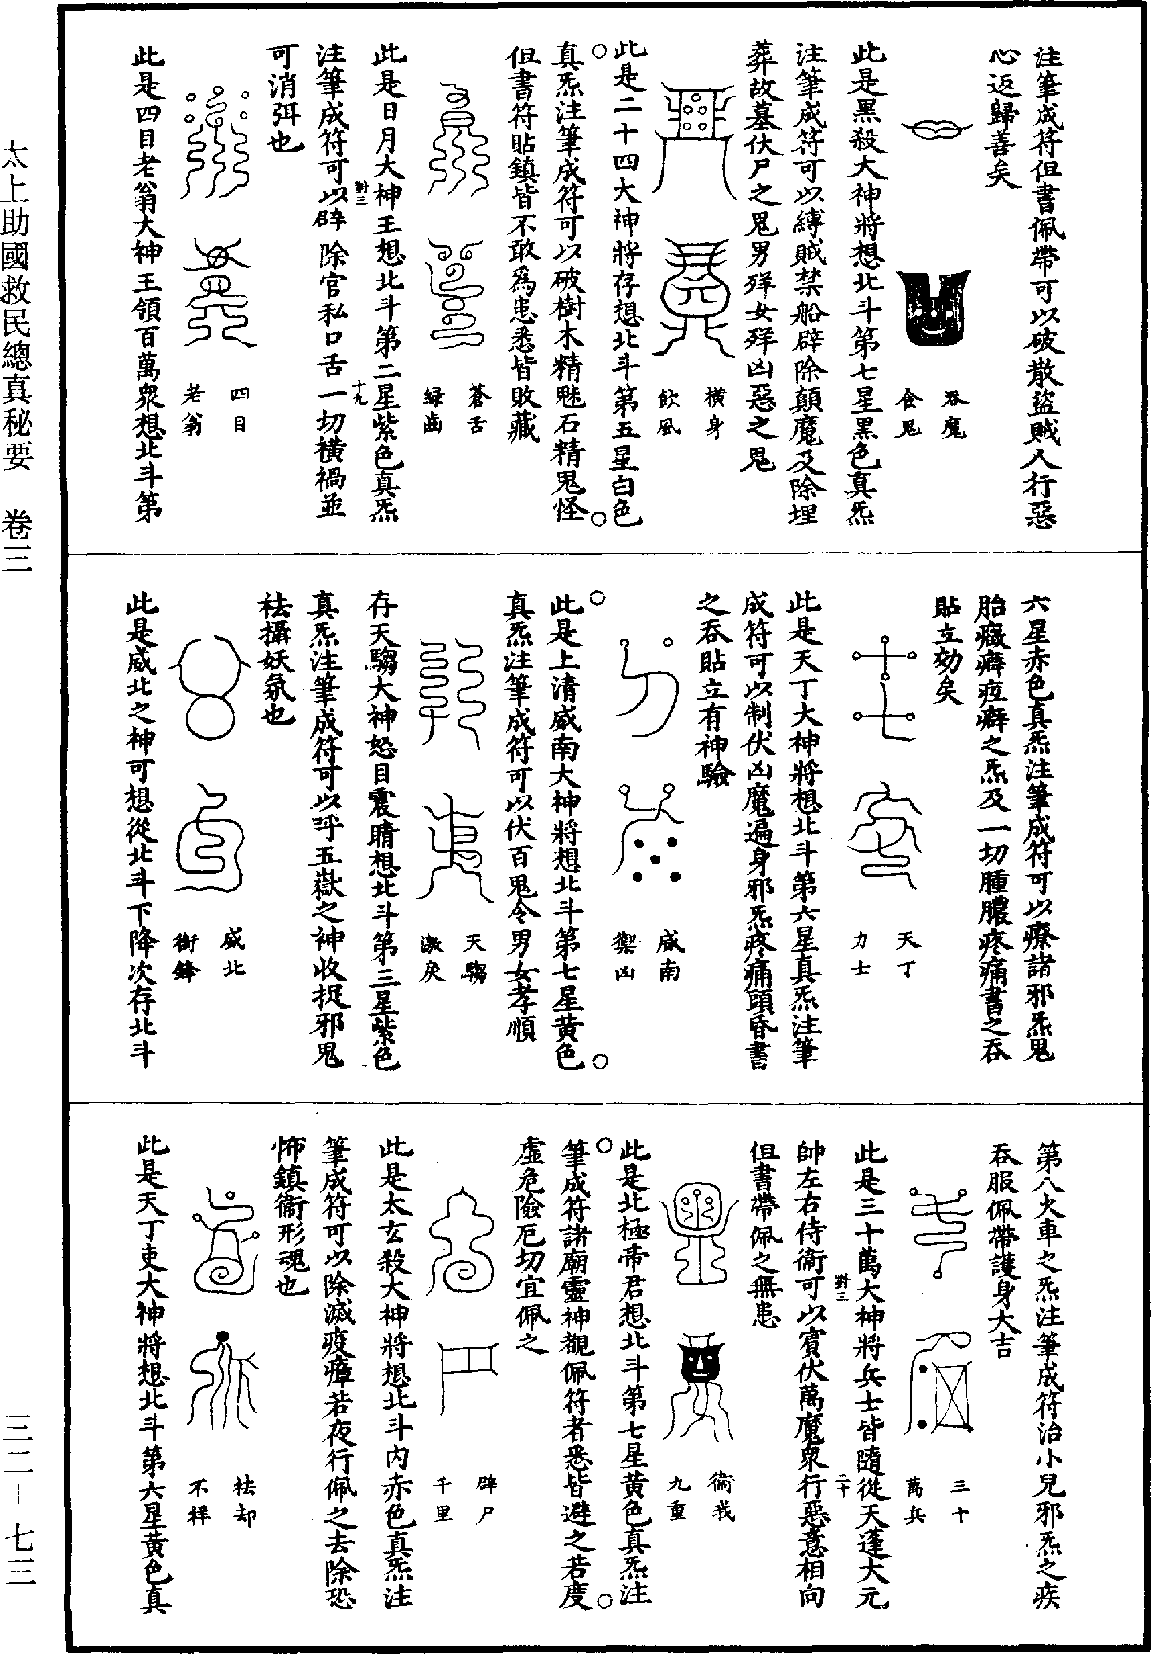 注筆成符但書佩帶可以破散盜賊人行惡
心返歸善矣
吞魔
食鬼
此是黑殺大神將想北斗第七星黑色真炁
注筆成符可以縛賊禁船辟除顛魔及除埋
葬故墓伏尸之鬼男殍女殍凶惡之鬼
橫身
飲風
此是二十四大神將存想北斗第五星白色
真炁注筆成符可以破樹木精魅石精鬼怪
但書符貼鎮皆不敢為患悉皆敗藏
蒼舌
綠齒
此是日月大神王想北斗第二星紫色真炁
對三
十九
注筆成符可以辟除官私口舌一切橫禍並
可消弭也
四目
老翁
此是四目老翁大神王領百萬眾想北斗第
六星赤色真炁注筆成符可以療諸邪炁鬼
胎癥癖痃癖之炁及一切腫膿疼痛書之吞
貼立効矣
天丁
力士
此是天丁大神將想北斗第六星真炁注筆
成符可以制伏凶魔遍身邪炁疼痛頭昏書
之吞貼立有神驗
威南
禦凶
此是上清威南大神將想北斗第七星黃色
真炁注筆成符可以伏百鬼令男女孝順
天騶
激戾
存天騶大神怒目震睛想北斗第三星紫色
真炁注筆成符可以呼五嶽之神收捉邪鬼
祛攝妖氛也
威北
銜鋒
此是威北之神可想從北斗下降次存北斗
第八火車之炁注筆成符治小兒邪炁之疾
吞服佩帶護身大吉
三十
萬兵
此是三十萬大神將兵士皆隨從天蓬大元
對三
二十
帥左右侍衞可以賓伏萬魔眾行惡意相向
但書帶佩之無患
衞我
九重
此是北極帝君想北斗第七星黃色真炁注
筆成符諸廟靈神覩佩符者悉皆避之若度
虛危險厄切宜佩之
辟尸
千里
此是太玄殺大神將想北斗內赤色真炁注
筆成符可以除滅疫瘴若夜行佩之去除恐
怖鎮衞形魂也
祛却
不祥
此是天丁吏大神將想北斗第六星黃色真
太上助國救民總真秘要　卷三
三二－七三